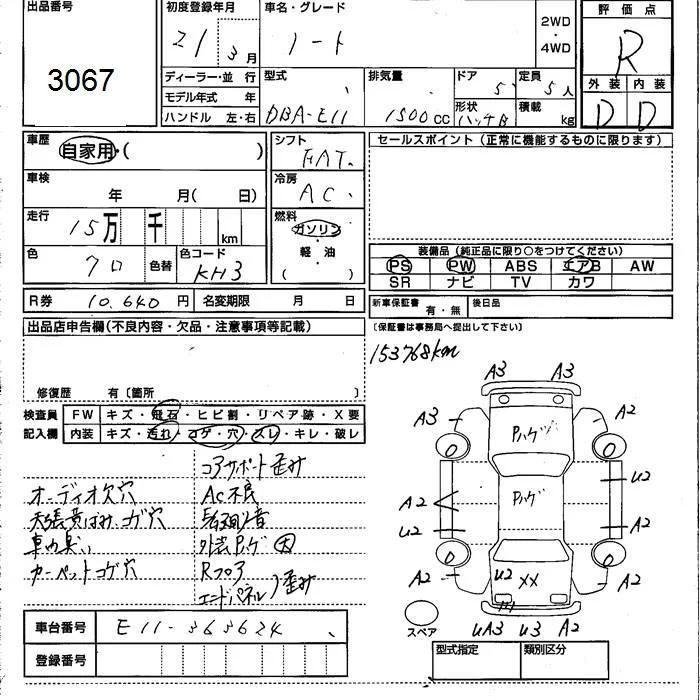 出品番号 初度登録年月 車名・グレード 2WD・4WD 評価点
3067 21 3月 ノート R
ディーラー・並行 型式 排気量 ドア 5 定員 5人 外装 内装
モデル年式 年 DBA-E11 1500cc 形状 ハッチB 積載 kg D D
ハンドル 左・右
車歴 自家用・( ) シフト FAT セールスポイント(正常に機能するものに限ります)
車検 年 月( 日) 冷房 AC
走行 15万 千 km 燃料 ガソリン 軽・油 ( )
色 クロ 色替 色コード KH3
装備品(純正品に限り○をつけてください)
PS PW ABS エアB AW
SR ナビ TV カワ
R券 10.640円 名変期限 月 日 新車保証書 有・無 後日品
出品店申告欄(不良内容・欠品・注意事項等記載) (保証書は事務局へ提出して下さい)
153768km
修復歴 有〔箇所 〕
検査員記入欄 FW キズ・飛石・ヒビ割・リペア跡・X要
内装 キズ・汚れ・コゲ・穴・スレ・キレ・破レ
コアサポート歪み
オーディオ欠穴 AC不良
天張黄ばみ、コゲ穴
車内臭い 外装Pハゲ 大
カーペットコゲ穴 Rフロア
エンドパネル 歪み
車台番号 E11-363624
登録番号
A3 A3
A3 Pハゲ A2
U2
A2 Pハゲ
U2 A2
A2 U2 XX A2
スペア UA3 U3 A2
型式指定 類別区分